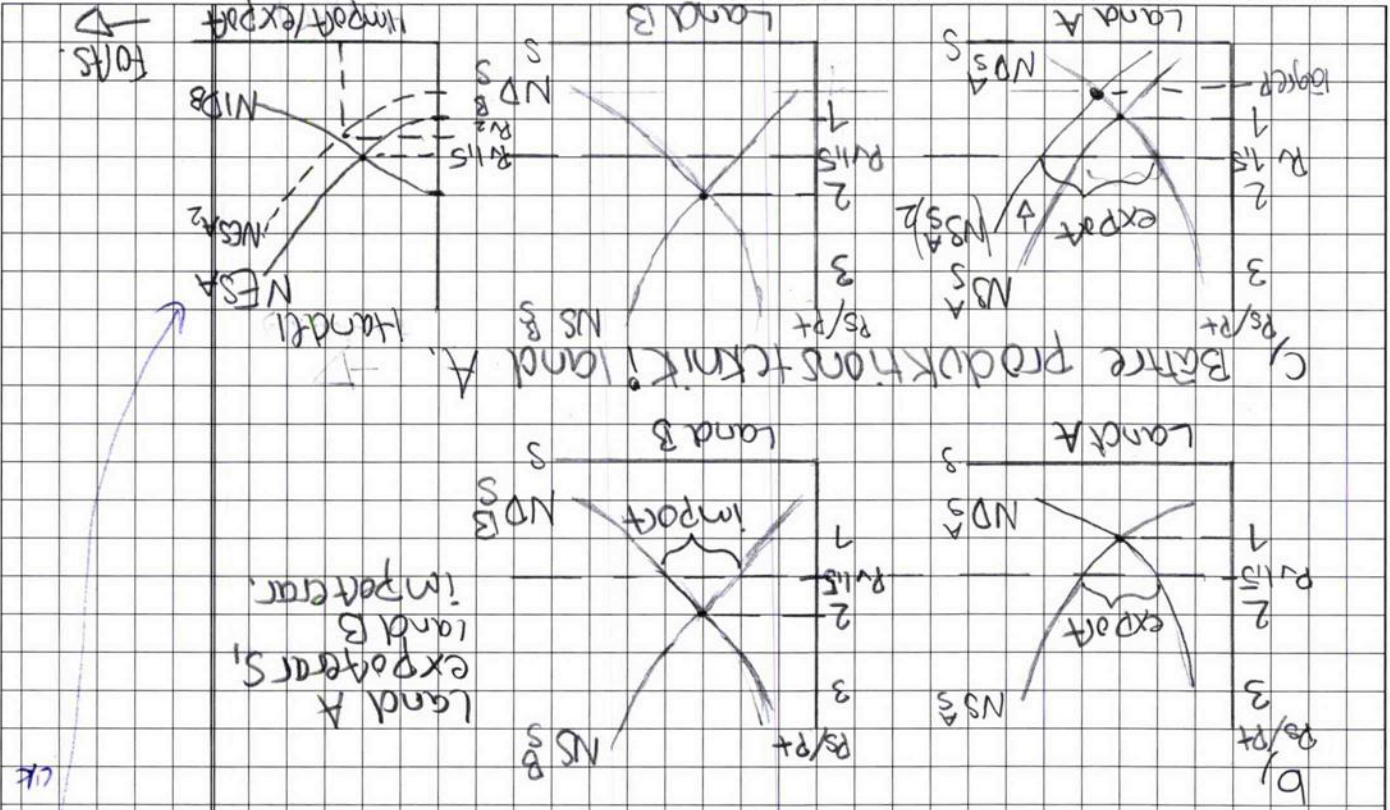 b,
Ps/Pt
3
2
Rv 1,5
1
NS A S
export
ND A S
S
Land A
Ps/Pt
3
2
Rv 1,5
1
NS B S
ND B S
import
S
Land B
Land A
exporterar S,
Land B
importerar.
C, Bättre produktionsteknik i land A.
Ps/Pt
3
2
Rv 1,5
1
lägre P
NS A S
(NS A S)2
export
ND A S
S
Land A
Ps/Pt
3
2
Rv 1,5
1
NS B S
ND B S
S
Land B
Handel
NESA
NESA2
Rv 1,5
Rv2
NIDB
Import/export
Forts.